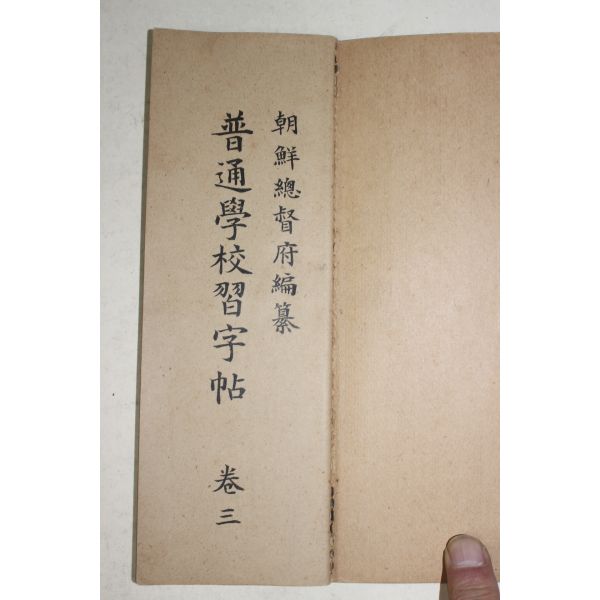 朝鮮總督府編纂
普通學校習字帖
卷三